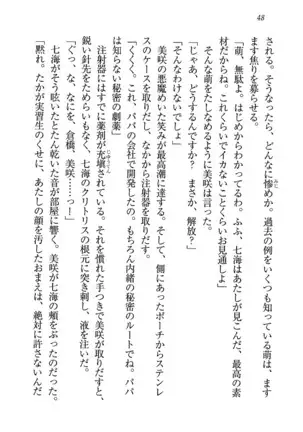 48
される。そうなったら、どんなに惨めか。過去の例をいくつも知っている萌は、ます
ます焦りを募らせる。
「萌、無駄よ。はじめからわかってる。ふふ、七海はあたしが見こんだ、最高の素
材だから。これくらいでイかないことくらいお見通しよ」
そんな萌をたしなめるように美咲は言った。
「じゃあ、どうするんですか？　まさか、解放？」
「そんなわけないでしょ」
美咲の悪魔めいた笑みが最高潮に達する。そして、側にあったポーチからステンレ
スのケースを取りだし、なかから注射器を取りだす。
「くくく。これ、パパの会社で開発したの。もちろん内緒の秘密のルートでね。パパ
は知らない秘密の劇薬」
注射器にはすでに薬剤が充填されている。それを慣れた手つきで美咲が取りだすと、
鋭い針先をためらいもなく、七海のクリトリスの根元に突き刺し、液を注いだ。
「ぐっ、なにを、倉橋、美咲……っー」
七海がそう呟いたとたん乾いた音が部屋に響く。美咲が七海の頬をぶったのだった。
「黙れ。たかが実習生のくせに、あたしの顔を汚したおまえは、絶対に許さないんだ